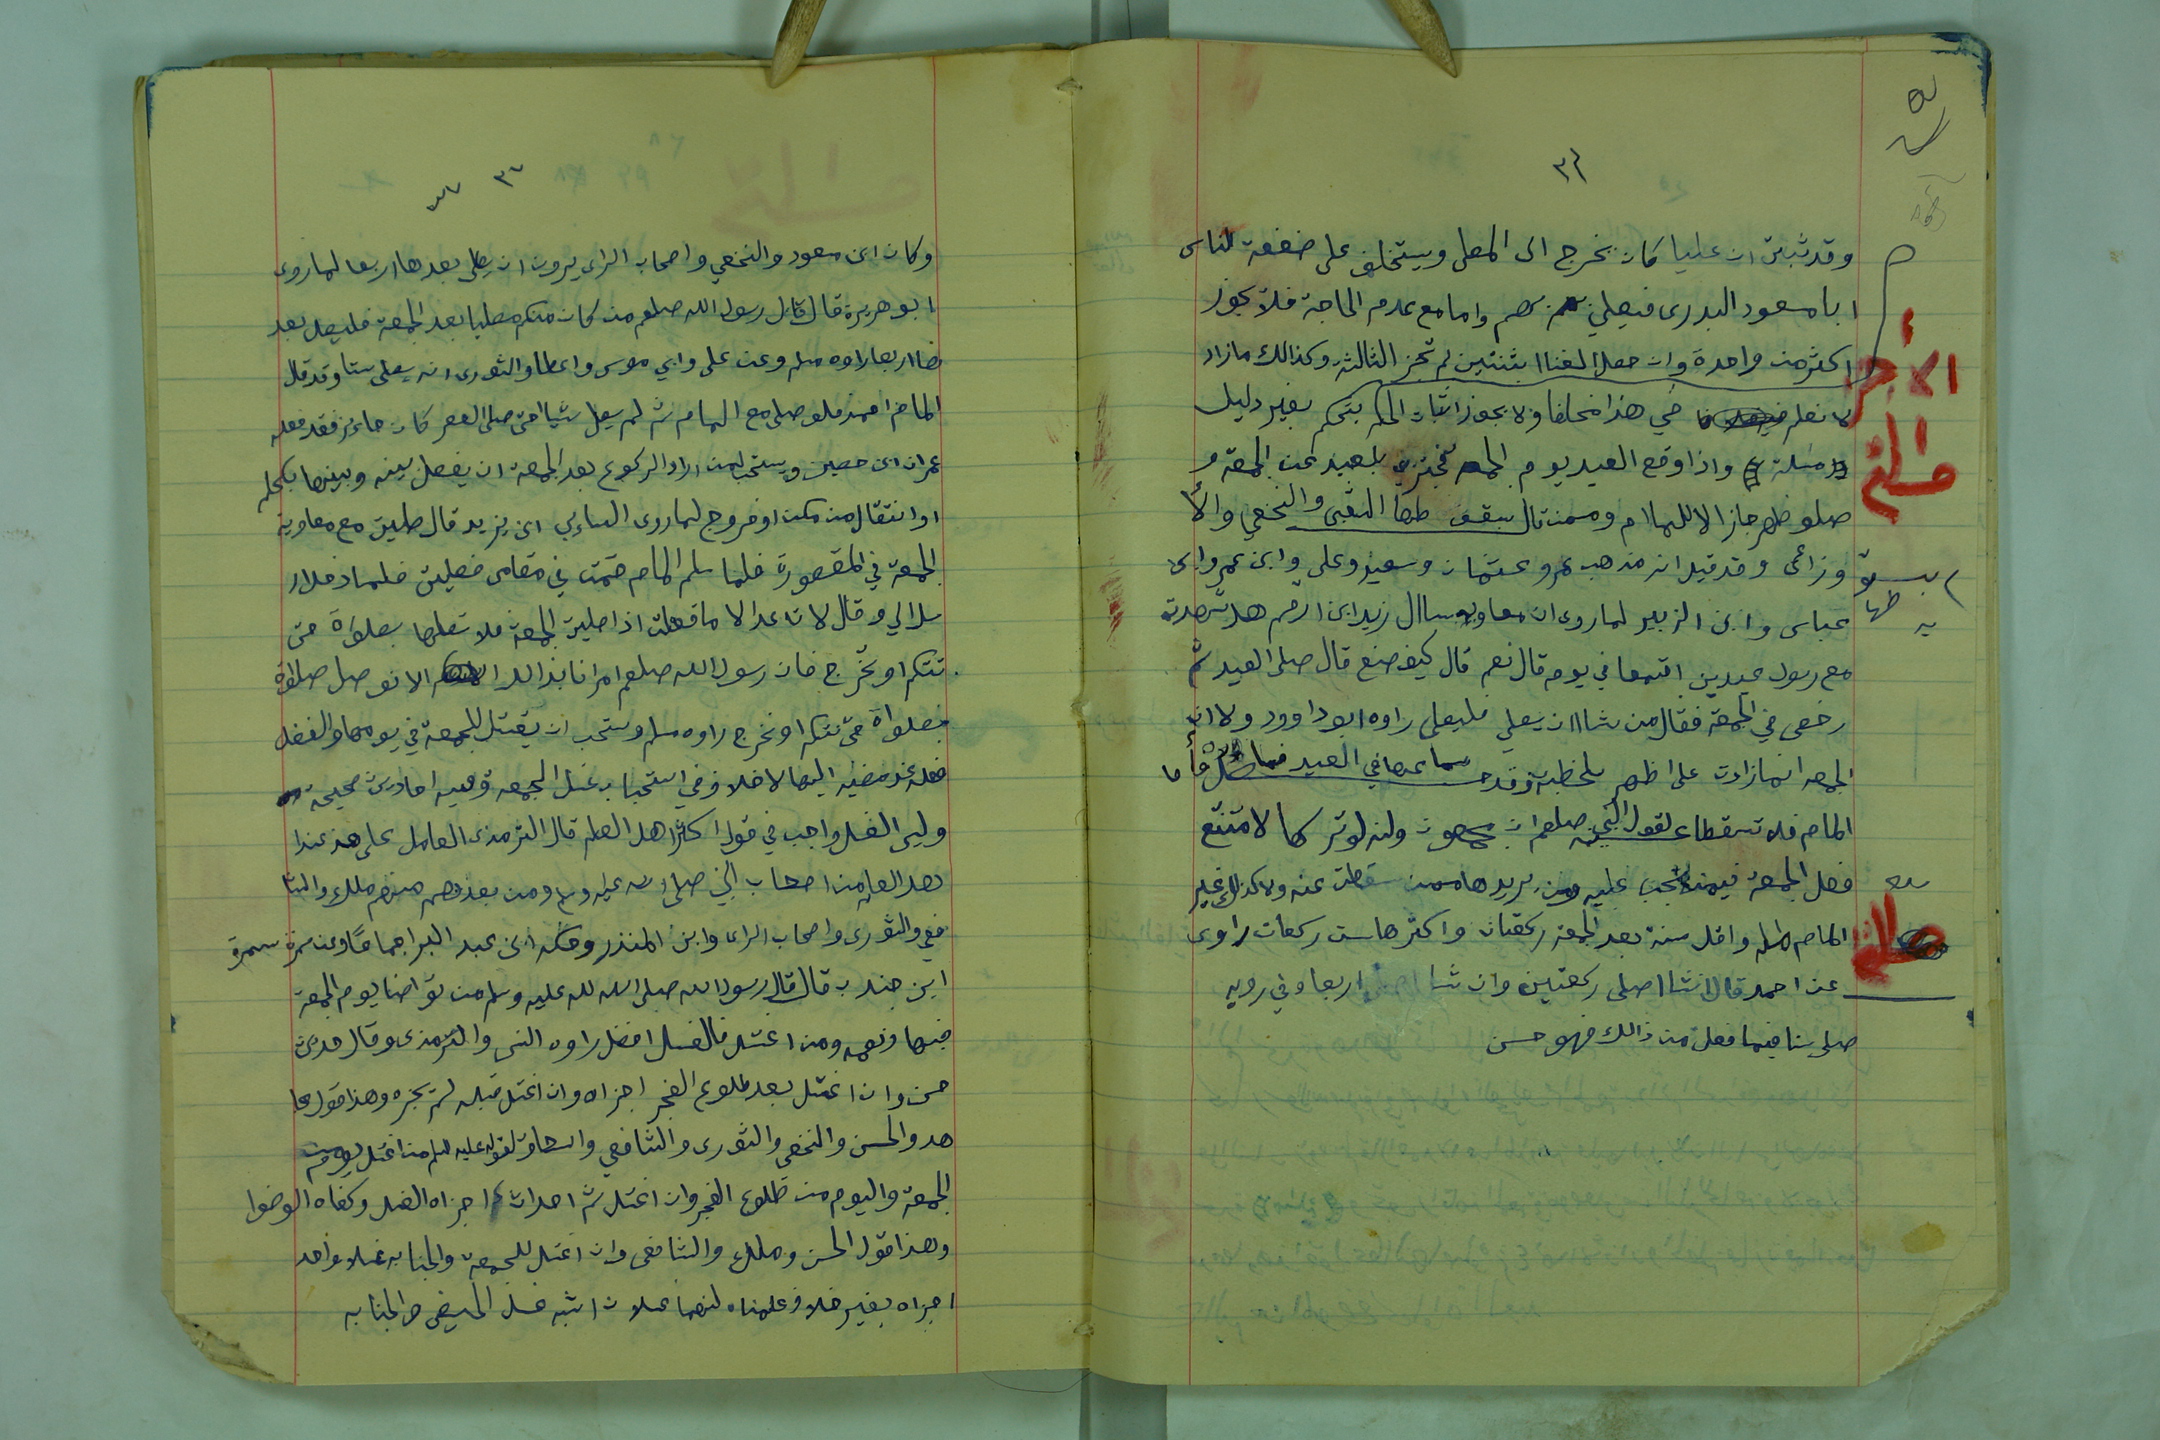 ٣٦
وقد ثبت ان عليا كان يخرج الى المصلى ويستخلف على ضفعة الناس
ابا مسعود البدرى فيصلي بهم واما مع عدم الحاجة فلا يجوز
اكثر من واحدة وان حصل الغنا ابثنتين لم تجز الثالثة وكذالك مازاد
لا نعلم في هذا مخلفا ولا يجوز اثبات الحكم بتحكم بغير دليل
مسلة واذا وقع العيد يوم الجمعه فجتزي بلعيد عن الجمعة و
صلو ظهر جاز الا للاماام وممن قال بسقف طها الشعبي والنخعي والأ
وزاعى وقد قيل انه مذهب عمر وعثمان وسعيد وعلى وابن عمر وابن
عباس وابن الزبير لما روى ان معاويه سال زيد ابن ارقم هل شهدت
مع رسول عيدين اقتمعا في يوم قال نعم قال كيف صنع قال صلى العيد ثم
رخص في الجمعة فقال من شاان يصلي فليصلى راوه ابو داوود ولا ان
الجمعه انما زادت على اظهر بلخطبة وقد سماعها في العيد
المام فلا تسقطا لقول النبي صلعم ان ولنه لو تركها لامتنع
فصل الجمعة فيمن تجب عليه ومن يريدها ممن سقطت عنه ولا كذالك غير
المام مسله واقل سنة بعد الجمعة ركعتان واكثرها ست ركعات راوى
عن احمد قال انشا اصلى ركعتين وان شا اربعا وفي رويه
صلى ستا فيما فعل من ذالك فهو حسن
بسقو
طها
الأجر
٣٧
وكان ابن مسعود والنخعي واصحاب الراى يرون ان يصلى بعدها اربعا لما روى
ابو هريرة قال قال رسول الله صلعم من كان منكم مصليا بعد الجمعة فليصل بعد
ها اربعا راوه مسلم وعن على وابي موسى واعطا والثورى انه يصلى ستا وقد قال
المام احمد ملو صلى مع المام ثم لم يصل شيا حتى صلى العصر كان جائز فقد فعله
عمران ابن حصين ويستحب لمن اراد الركوع بعد الجمعة ان يفصل بينه وبينها بكلم
او انتقال من مكن او خروج لما روى السائب ابن يزيد قال صليت مع معاوية
الجمعة في المقصورة فلما سلم المام قمت في مقامى فصليت فلما دخل ار
سل الي وقال لا تاعد الا ما فعلت اذا صليت الجمعة فلا تصلها بصلواة حتى
تتكم او تخرج فان رسول الله صلعم امرانا بذالك الا نوصل صلاة
بصلواة حتى نتكم او نخرج راوه مسلم وستحب ان يغتسل للجمعة في يومها والفضل
فعله عند مضيه اليها لا خلاف في استحباب غسل الجمعه وفيه احاديث صحيحة
وليس الغسل واجب في قول اكثر اهل العلم قال الترمذى العامل على هذ عندا
اهل العلم من اصحاب النبي صلى الله عليه وسلم ومن بعدهم منهم ملك والشا
فعي والثورى واصحاب الراى وابن المنذر وحكه ابن عبد البر اجماعاً وعن سمرة
ابن جندب قال قال رسول الله صلى الله عليه وسلم من توا ضا يوم الجمعة
فبها ونعمه ومن اغتسل فالغسل افضل راوه النسى والترمذى وقال حديث
حسن وان اغتسل بعد طلوع الفجر اجزاه وان اغتسل قبله لم يجزه وهذا قول مجا
هد والحسن والنخعى والثورى والشافعي واسحاق لقوله عليه السلم من اغتسل يوم
الجمعة واليوم من طلوع الفجر وان اغتسل ثم احداث اجزاه الغسل وكفاه الوضوا
وهذا قول الحسن وملك والشافعى وان اغتسل للجمعة والجنابه غسلا واحد
اجزاه بغير خلاف علمناه لنهما غسلان اشبه غسل الحيض والجنابه